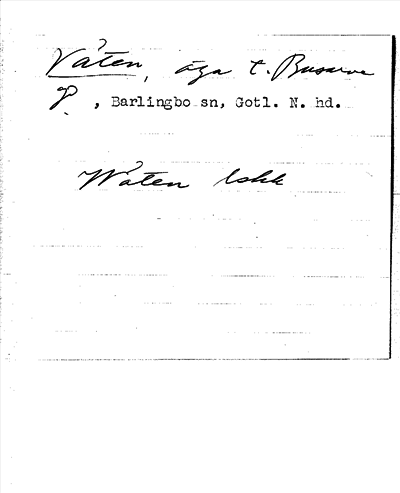 Våten, äga t. Busarve
?, Barlingbo sn, Gotl. N. hd.
Wåten lskk